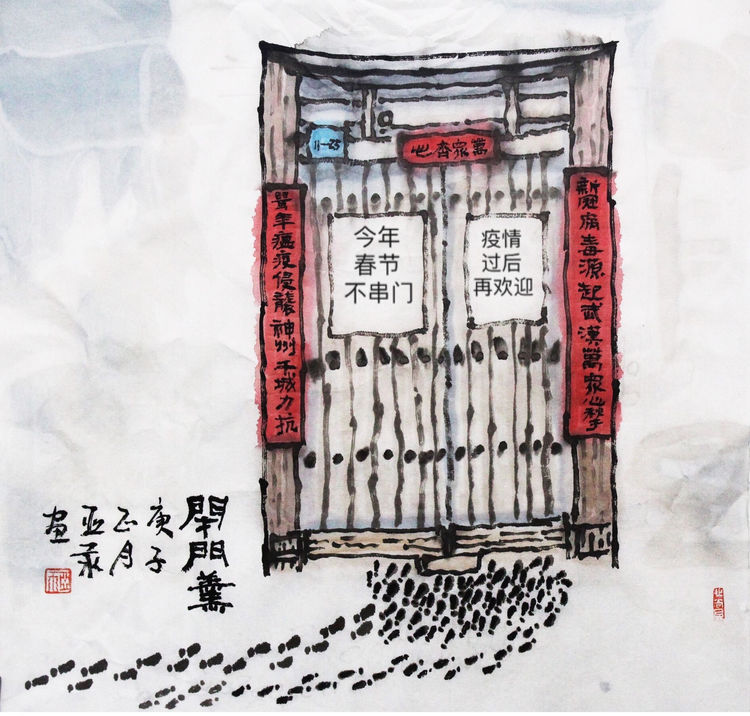 萬眾齊心
新冠病毒源起武漢萬眾心
鼠年瘟疫侵襲神州千城力抗
今年
春节
不串门
疫情
过后
再欢迎
閉門羹
庚子
正月
亚
画